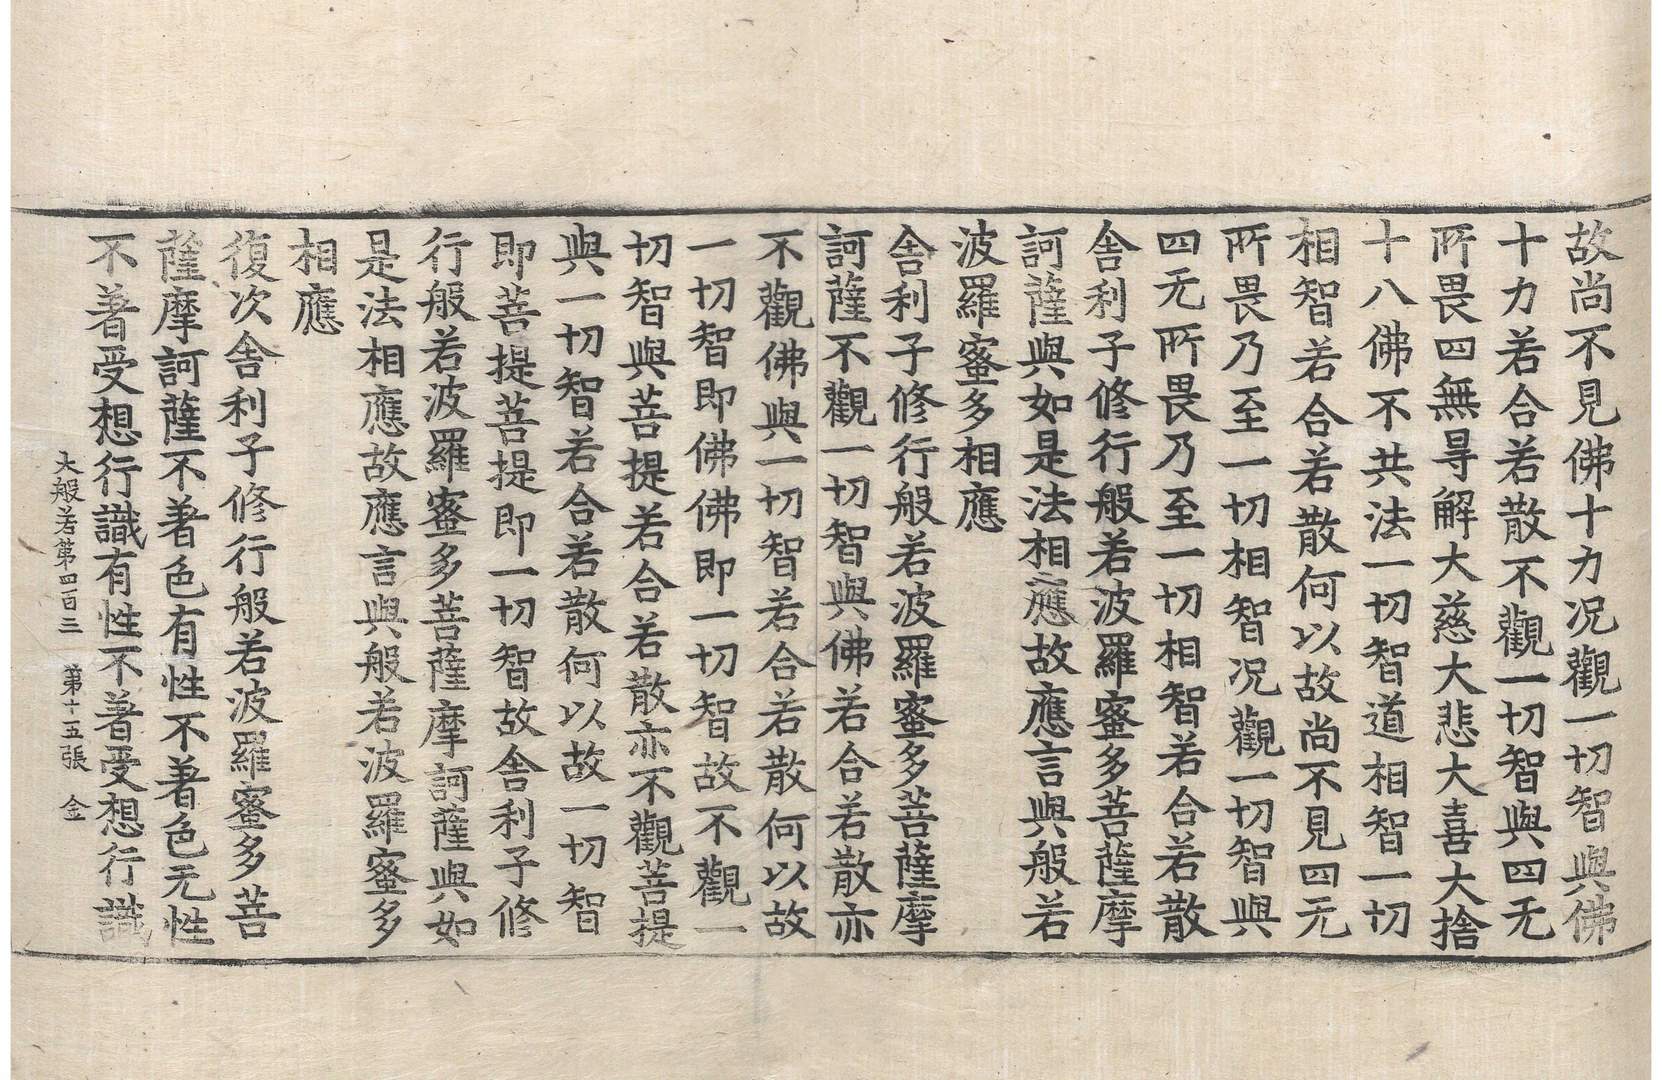 故尚不見佛十力况觀一切智與佛
十力若合若散不觀一切智與四无
所畏四無㝵解大慈大悲大喜大捨
十八佛不共法一切智道相智一切
相智若合若散何以故尚不見四无
所畏乃至一切相智况觀一切智與
四无所畏乃至一切相智若合若散
舎利子修行般若波羅蜜多菩薩摩
訶薩與如是法相應故應言與般若
波羅蜜多相應
舎利子修行般若波羅蜜多菩薩摩
訶薩不觀一切智與佛若合若散亦
不觀佛與一切智若合若散何以故
一切智即佛佛即一切智故不觀一
切智與菩提若合若散亦不觀菩提
與一切智若合若散何以故一切智
即菩提菩提即一切智故舎利子修
行般若波羅蜜多菩薩摩訶薩與如
是法相應故應言與般若波羅蜜多
相應
復次舎利子修行般若波羅蜜多菩
薩摩訶薩不著色有性不著色无性
不著受想行識有性不著受想行識
大般若第四百三　第十五張　金